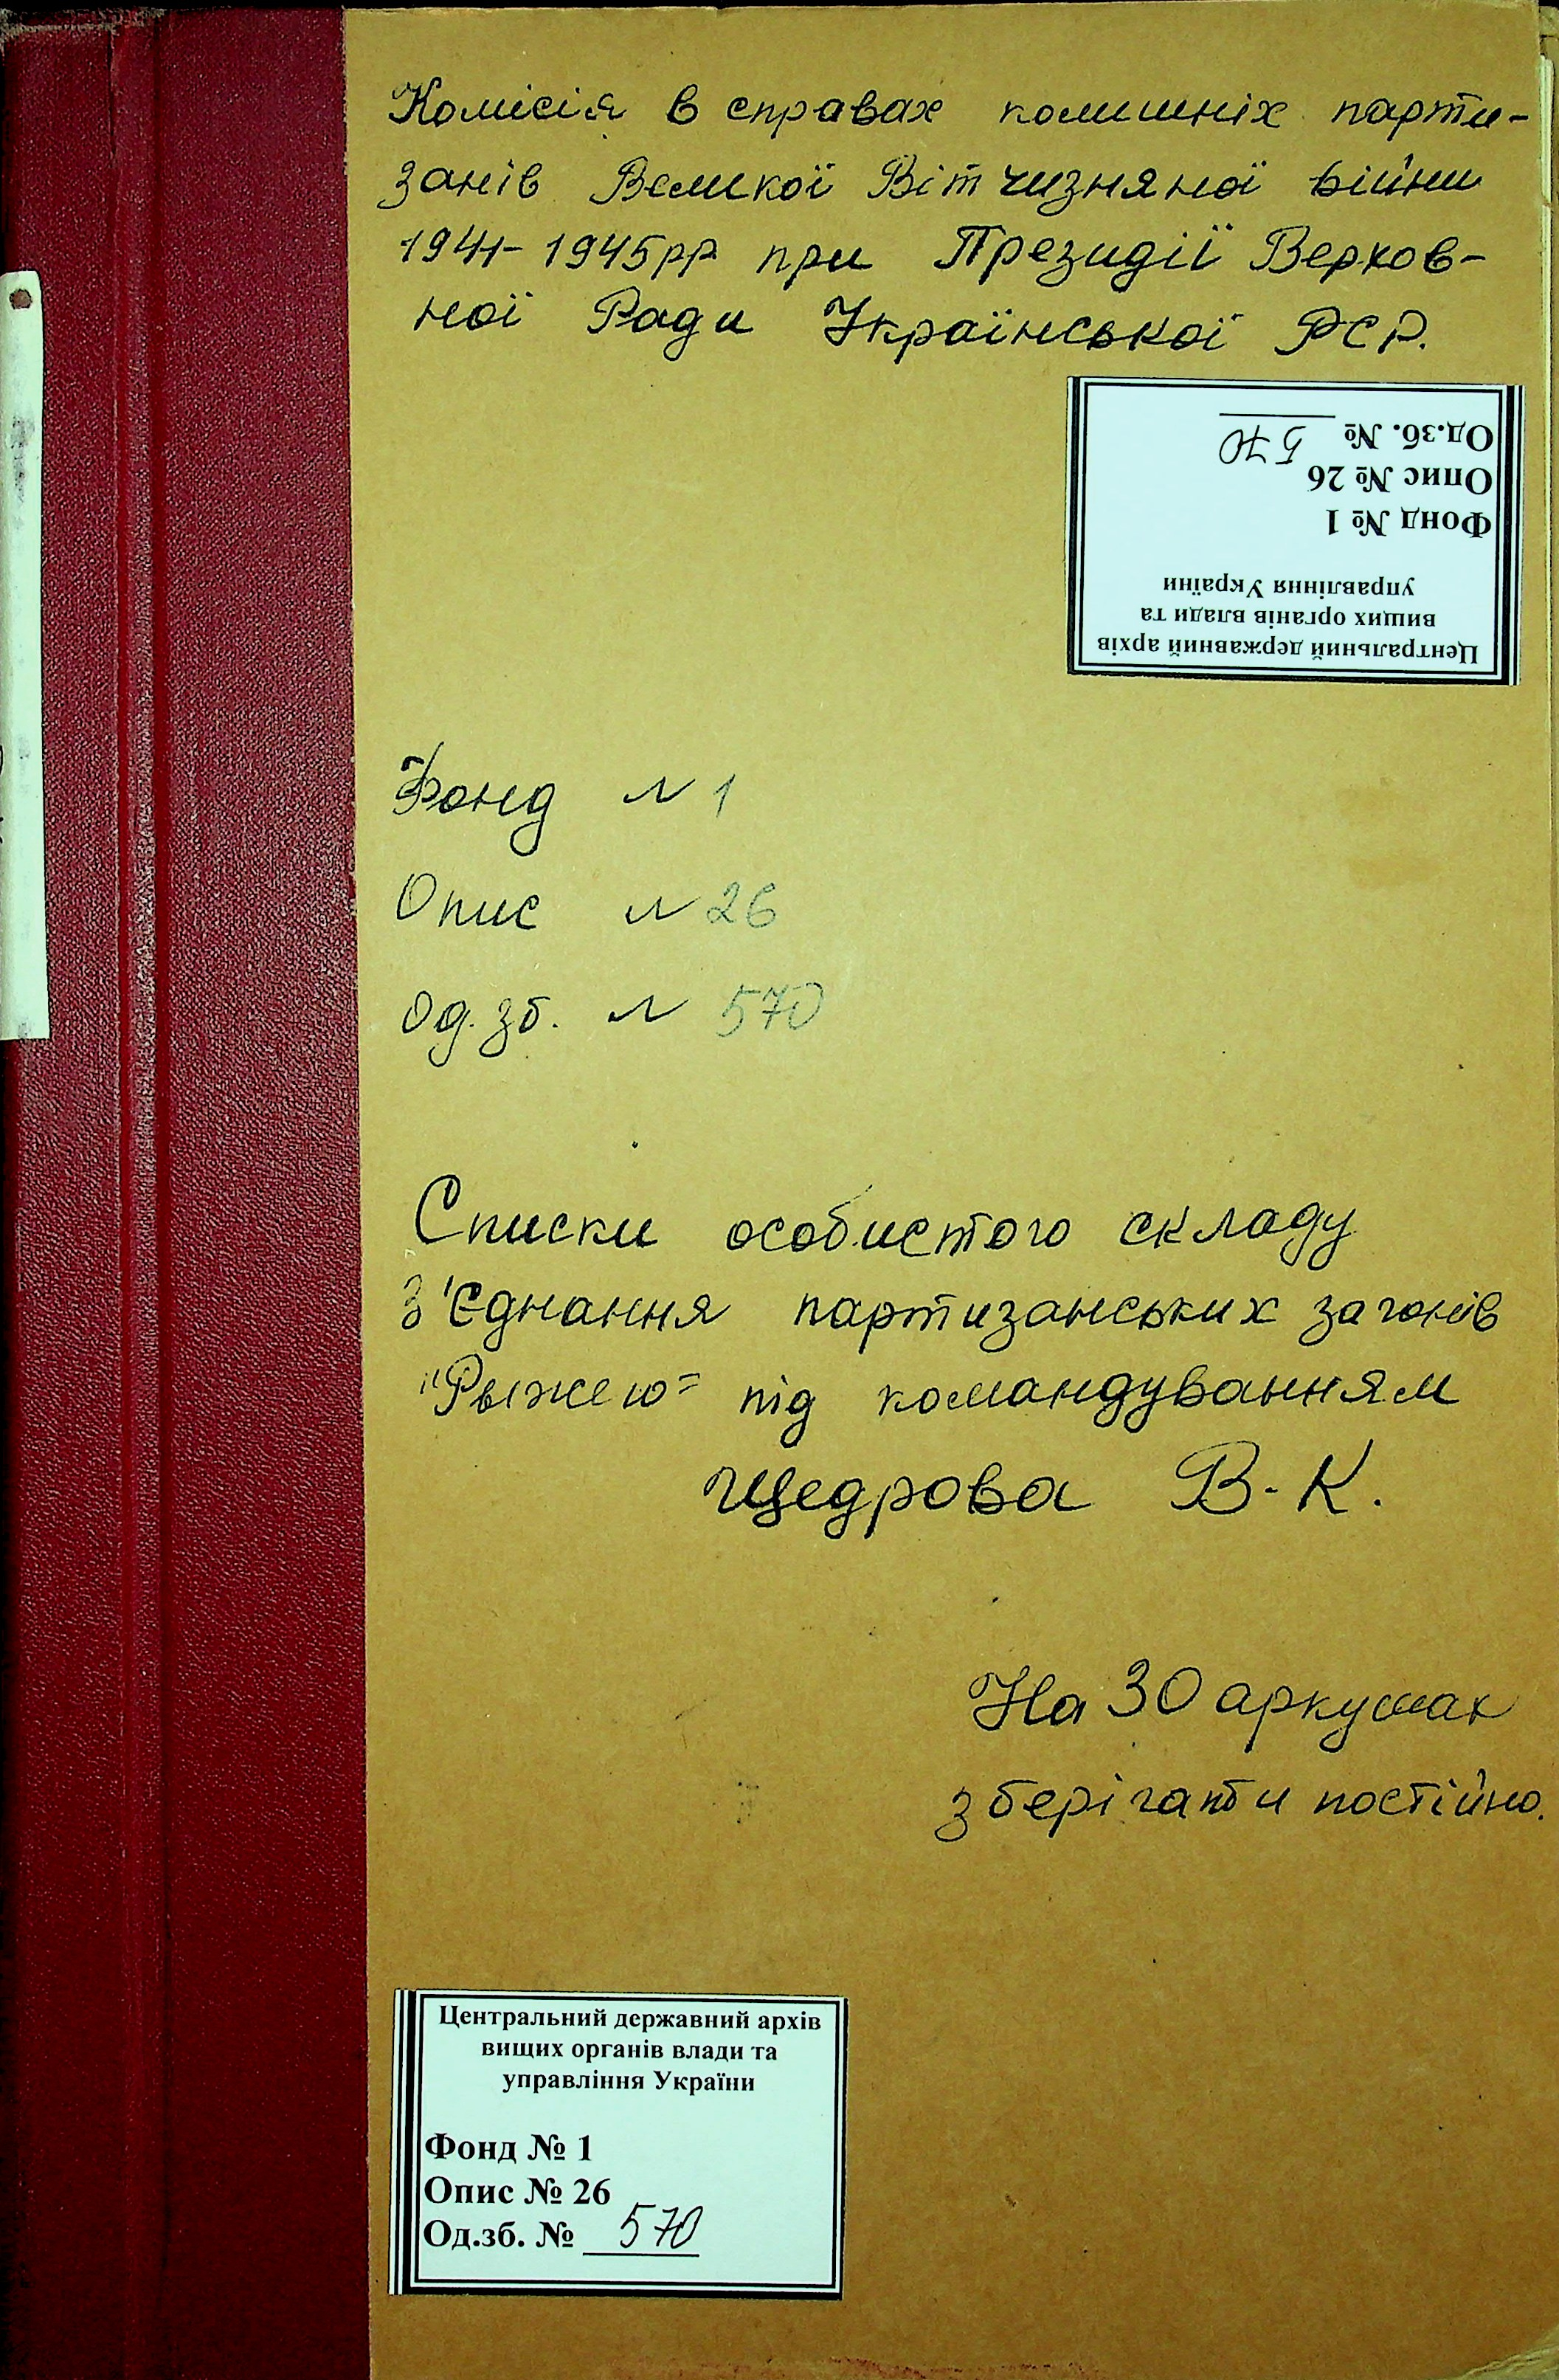 Комісія в справах колишніх парти-
занів Великої Вітчизняної війни
1941-1945рр при Президії Верхов-
ної Ради Української РСР.
Центральний державний архів
вищих органів влади та
управління України
Фонд № 1
Опис № 26
Од.зб. № 570
Фонд № 1
Опис № 26
Од. зб. № 570
Списки особистого складу
З'єднання партизанських загонів
"Рыжею" під командуванням
Щедрова В. К.
На 30 аркушах
зберігати постійно.
Центральний державний архів
вищих органів влади та
управління України
Фонд № 1
Опис № 26
Од.зб. № 570